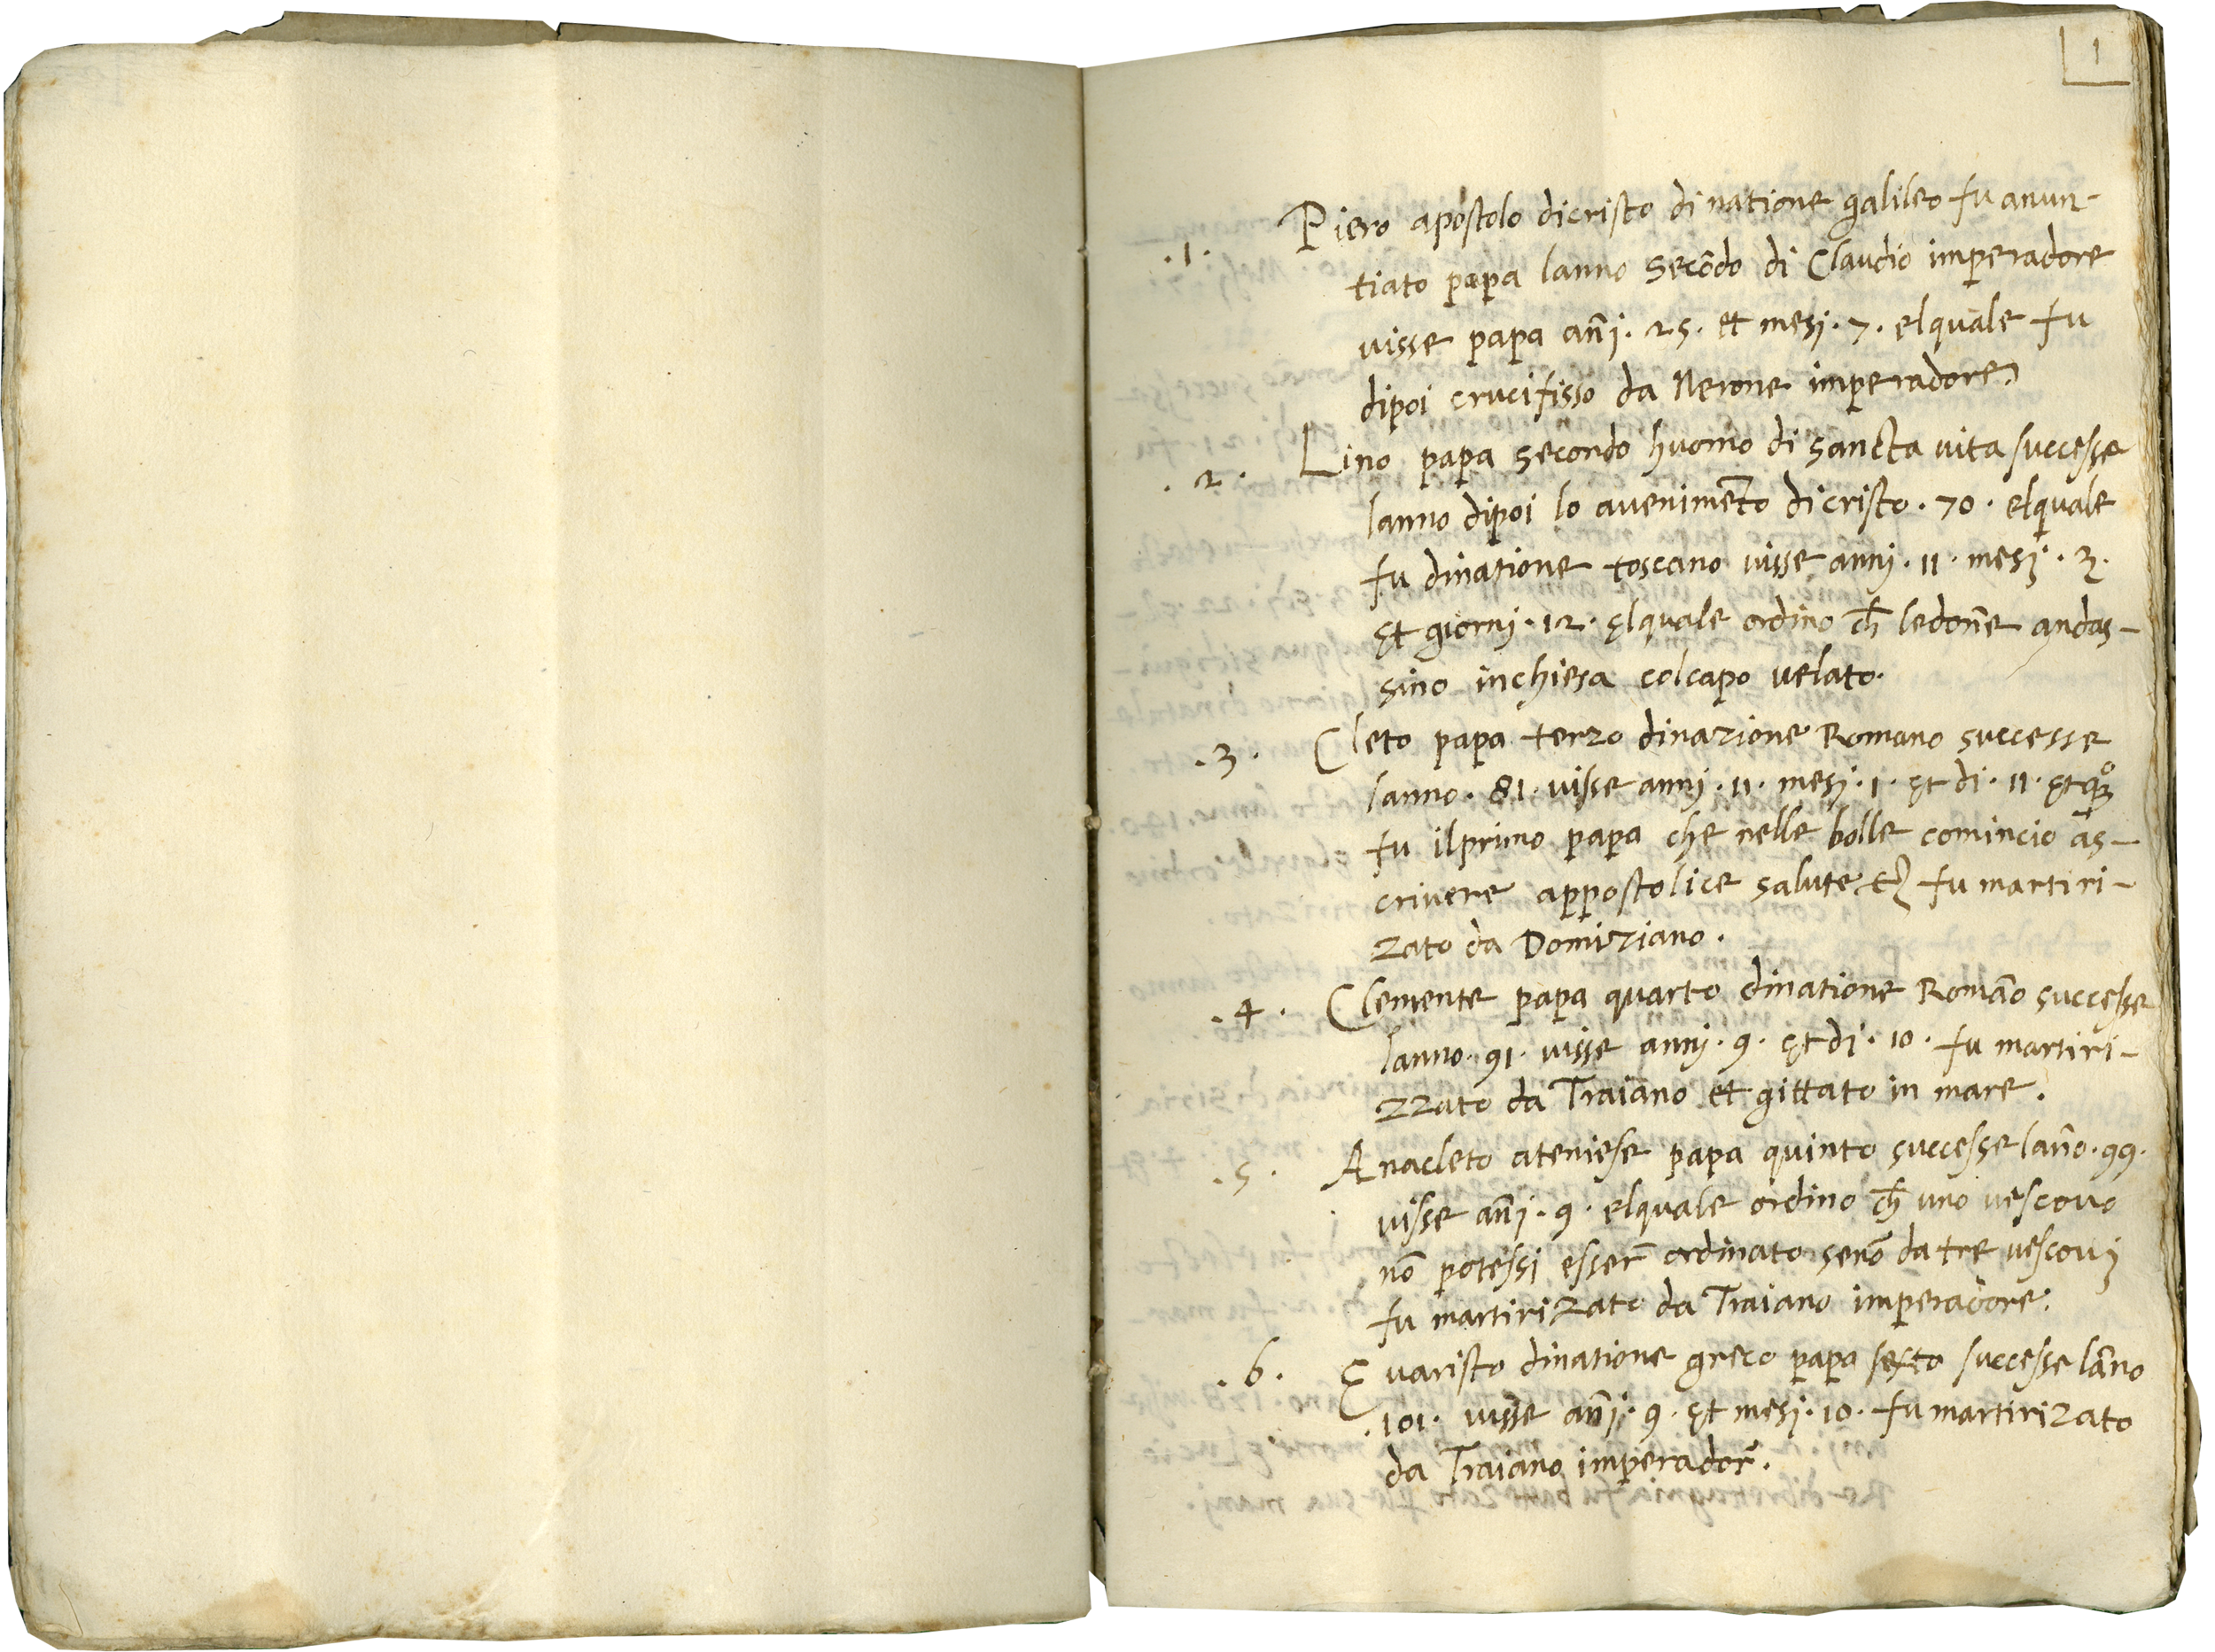 1
.1. Piero apostolo dicristo di natione galileo fu anun-
tiato papa lanno secōdo di Claudio imperadore
visse papa an̄j. 25. et mesj. 7. elquale fu
dipoi crucifisso da Nerone imperadore.
.2. Lino papa secondo huomo di sancta vita successe
lanno dipoi lo avenimēto dicristo. 70. elquale
fu dinatione toscano visse annj. 11. mesj. 3.
et giornj. 12. elquale ordino ch̄ ledon̄e andas-
sino inchiesa colcapo velato.
.3. Cleto papa terzo dinazione Romano successe
lanno. 81. visse annj. 11. mesj. 1. et di. 11. et
fu ilprimo papa che nelle bolle comincio as-
crivere appostolice salute etc fu martiri-
zato da Domiziano.
.4. Clemente papa quarto dinatione Romāo successe
lanno. 91. visse annj. 9. et dj. 10. fu martiri-
zzato da Traiano et gittato in mare.
.5. Anacleto ateniese papa quinto successe lan̄o. 99.
visse an̄j. 9. elquale ordino ch̄ uno vescovo
nō potessi esser̄ ordinato senō da tre vescovj
fu martirizato da Traiano imperadore.
.6. Evaristo dinatione greco papa sexto successe lān̄o
.101. visse an̄j. 9. et mesj. 10. fu martirizato
da Traiano imperador̄.